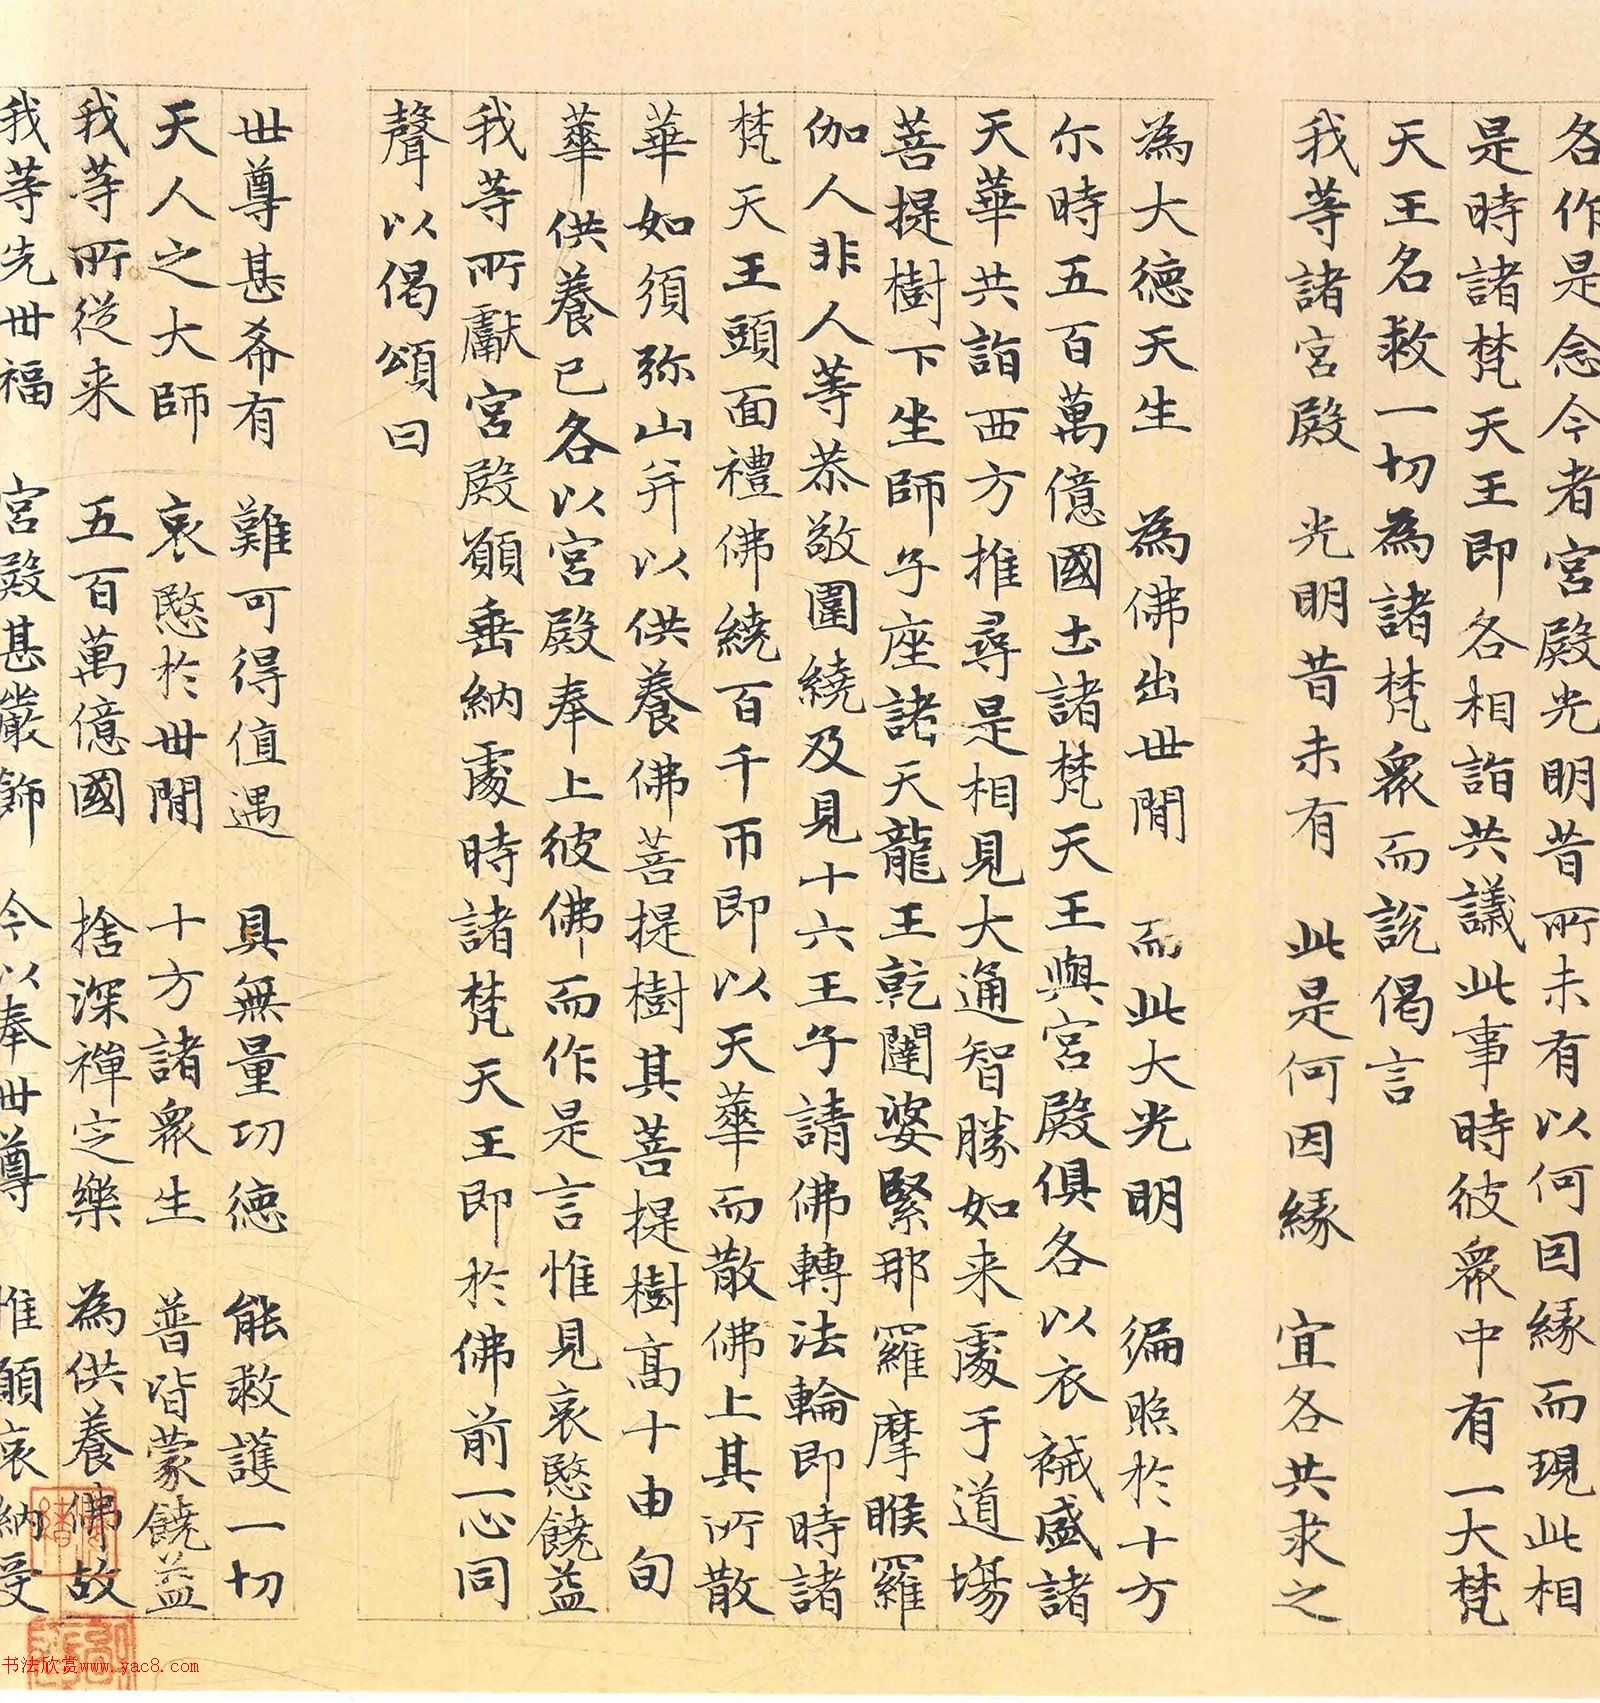 各作是念今者宮殿光明昔所未有以何因緣而現此相
是時諸梵天王即各相詣共議此事時彼衆中有一大梵
天王名救一切為諸梵衆而說偈言
我等諸宮殿 光明昔未有 此是何因緣 宜各共求之
為大德天生 為佛出世閒 而此大光明 徧照於十方
尒時五百萬億國土諸梵天王與宮殿俱各以衣祴盛諸
天華共詣西方推尋是相見大通智勝如来處于道場
菩提樹下坐師子座諸天龍王乾闥婆緊那羅摩睺羅
伽人非人等恭敬圍繞及見十六王子請佛轉法輪即時諸
梵天王頭面禮佛繞百千帀即以天華而散佛上其所散
華如須弥山并以供養佛菩提樹其菩提樹高十由旬
華供養已各以宮殿奉上彼佛而作是言惟見哀愍饒益
我等所獻宮殿願垂納處時諸梵天王即於佛前一心同
聲以偈頌曰
世尊甚希有 難可得值遇 具無量功德 能救護一切
天人之大師 哀愍於世閒 十方諸衆生 普皆蒙饒益
我等所從来 五百萬億國 捨深禪定樂 為供養佛故
我等先世福 宮殿甚嚴飾 今以奉世尊 惟願哀納受
书法欣赏www.yac8.com